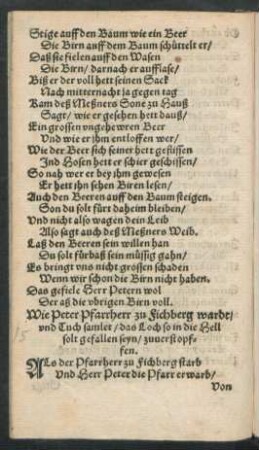 Stige auff den Baum wie ein Beer
Die Birn auff dem Baum schüttelt er/
Daß sie fielen auff den Wasen
Die Birn/ darnach er aufflase/
Biß er der voll hett seinen Sack
Nach mitternacht ja gegen tag
Kam deß Meßners Sone zu Hauß
Sagt/ wie er gesehen hett dauß/
Ein grossen vngehewren Beer
Vnd wie er jhm entloffen wer/
Wie der Beer sich seiner hett geflissen
Ind Hosen hett er schier geschissen/
So nah wer er bey jhm gewesen
Er hett jhn sehen Biren lesen/
Auch den Beeren auff den Baum steigen.
Son du solt fürt daheim bleiben/
Vnd nicht also wagen dein Leib
Also sagt auch deß Meßners Weib.
Laß den Beeren sein willen han
Du solt fürbaß sein müssig gahn/
Es bringt vns nicht grossen schaden
Wenn wir schon die Birn nicht haben.
Das gefiele Herr Petern wol
Der aß die vbrigen Birn voll.
Wie Peter Pfarrherr zu Fichberg wardt/
vnd Tuch samlet/ das Loch so in die Hell
solt gefallen seyn/ zuuerstopf-
fen.
ALs der Pfarrherr zu Fichberg starb
Vnd Herr Peter die Pfarr erwarb/
Von